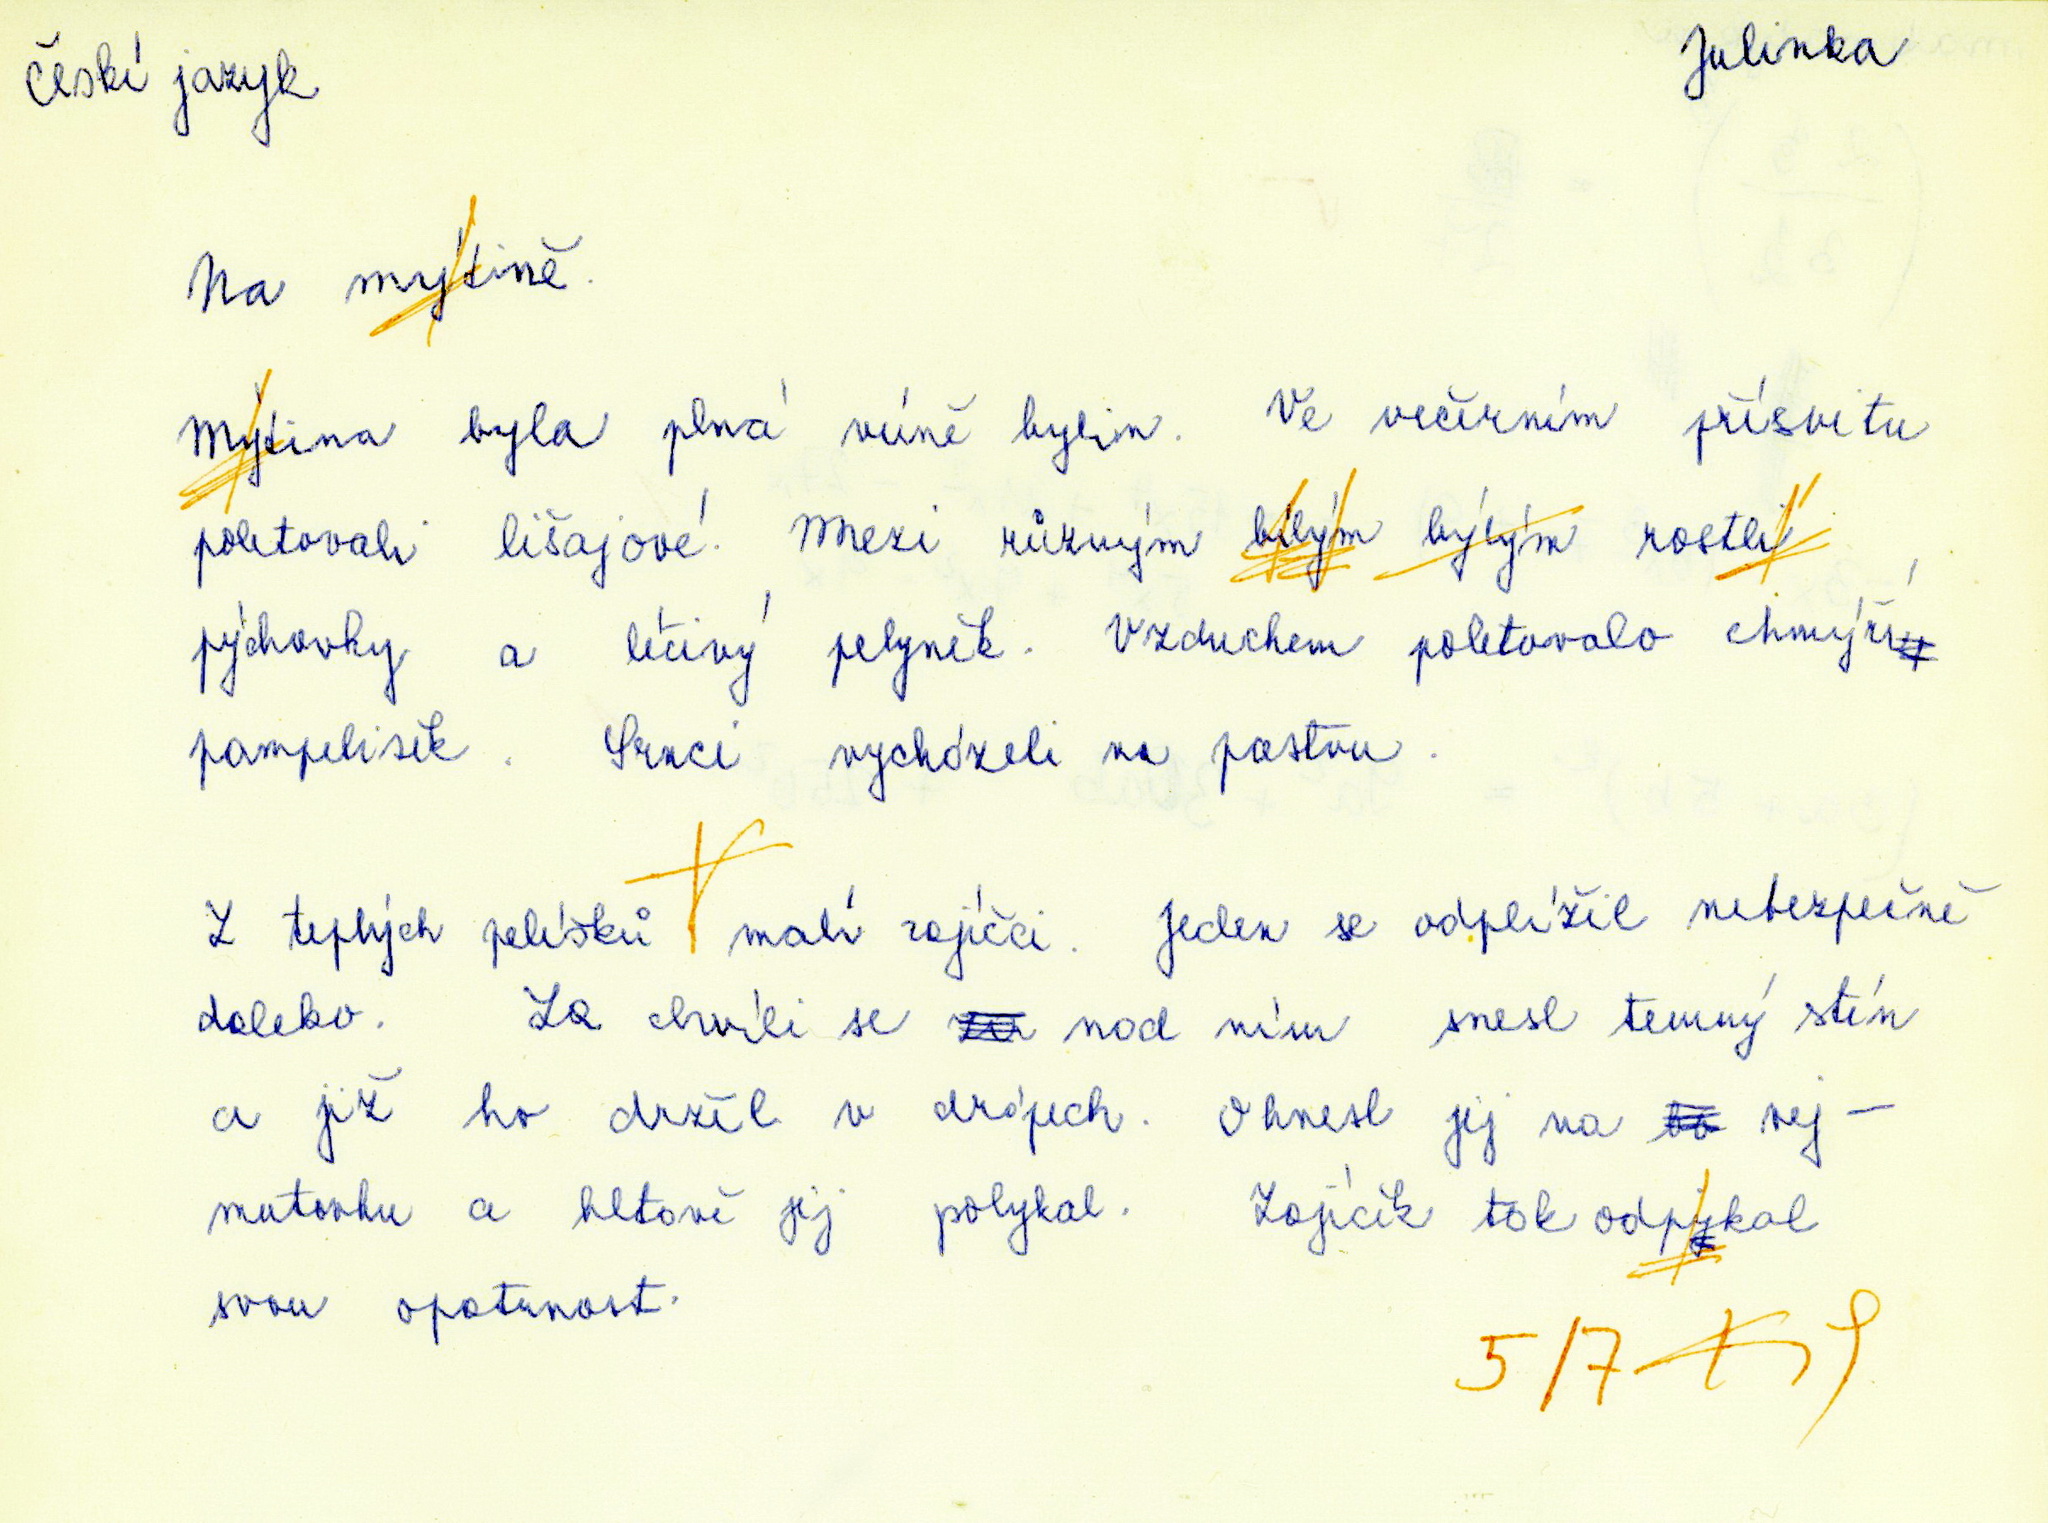 Českí jazyk
Julinka
Na mýtině.
Mýtina byla plná vúně bylin. Ve večírním přísvitu
poletovali lišajové. Mezi různým bílým býlým rostli
pýchovky a léčivý pelyněk. Vzduchem poletovalo chmýří
pampelišek. Srnci vycházeli na pastvu.
Z teplých pelíšků malí zajíčci. Jeden se odplížil nebezpečně
daleko. Za chvíli se nad ním snesl temný stín
a již ho držel v drápech. Ohnesl jej na nej-
mutovku a hltavě jej polykal. Zajíček tak odpykal
svou opatrnost.
5/7